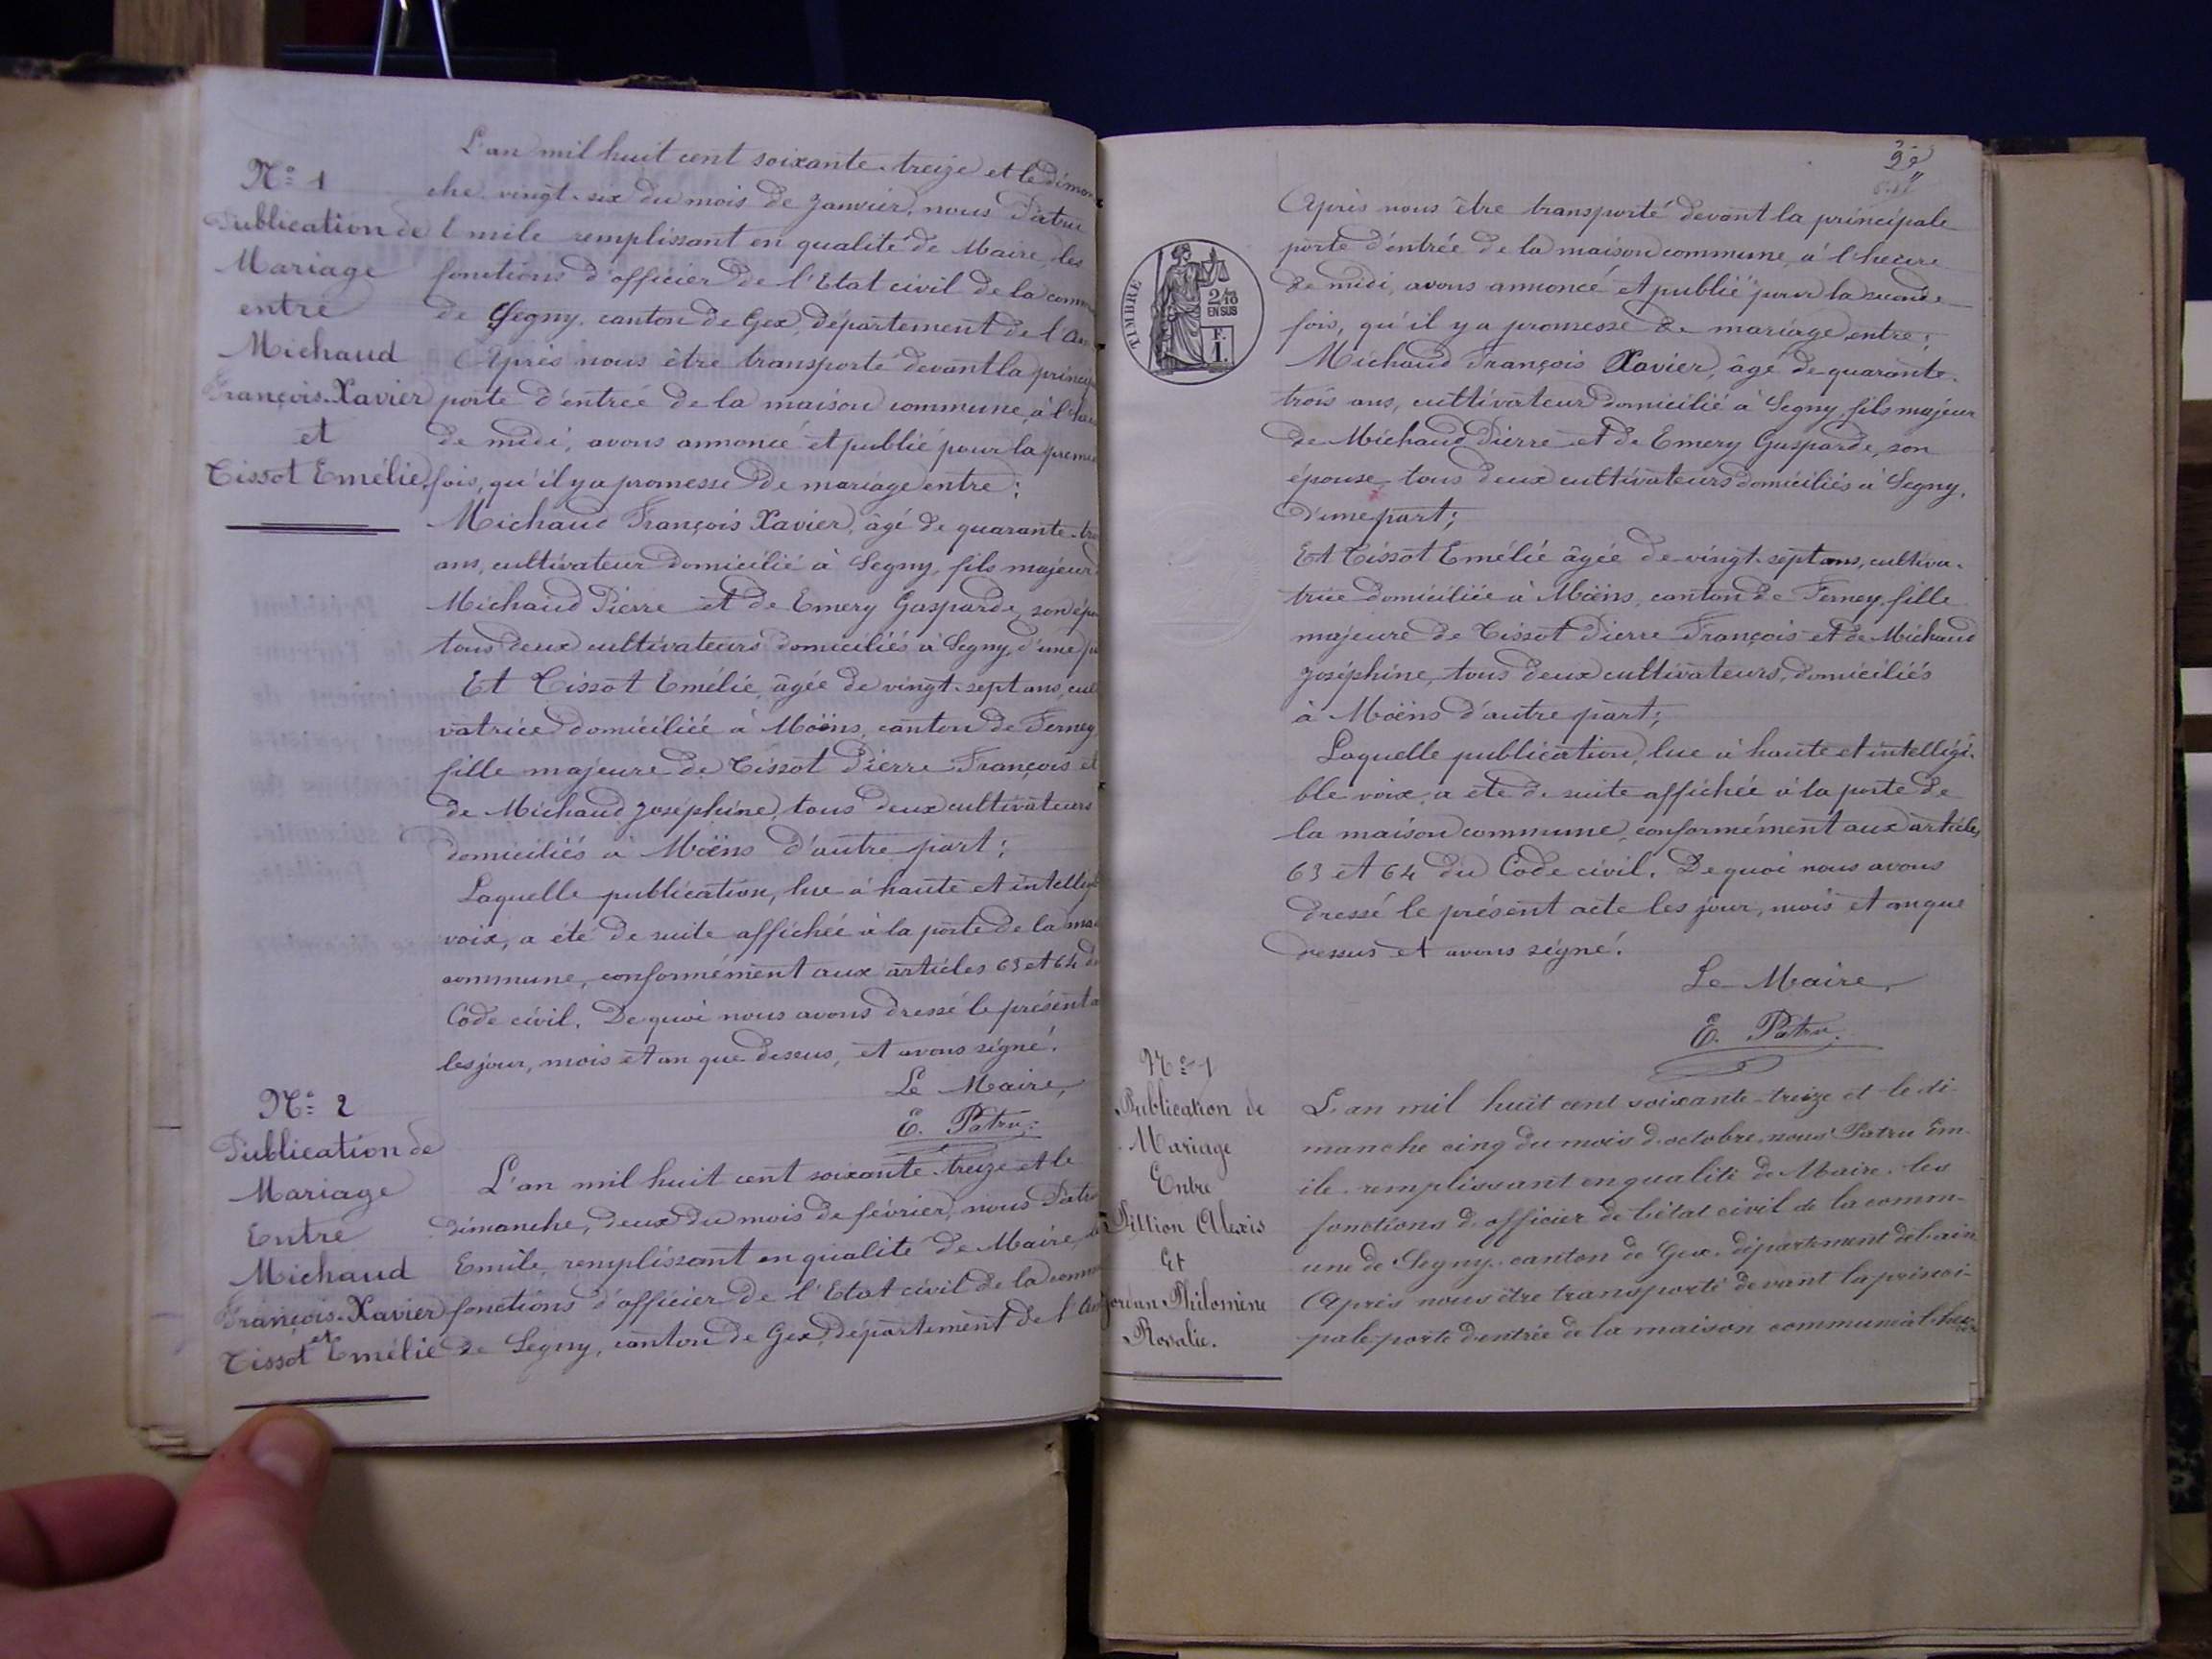 N° 1
Publication de
Mariage
entre
Michaud
François-Xavier
et
Tissot Emélie
L'an mil huit cent soixante-treize et le diman
che vingt-six du mois de Janvier, nous Patru
Emile remplissant en qualité de Maire, les
fonctions d'officier de l'Etat civil de la comm
de Segny, canton de Gex, département de l'Ain
Après nous être transporté devant la princip
porte d'entrée de la maison commune, à l'heu
de midi, avons annoncé et publié pour la premi
fois, qu'il y a promesse de mariage entre:
Michaud François Xavier, âgé de quarante-tr
ans, cultivateur domicilié à Segny, fils majeur
Michaud Pierre et de Emery Gasparde, son épo
tous deux cultivateurs domiciliés à Segny, d'une p
Et Tissot Emélie, âgée de vingt-sept ans, cul
vatrice domiciliée à Moëns, canton de Ferney
fille majeure de Tissot Pierre François et
de Michaud Joséphine, tous deux cultivateurs
domiciliés à Moëns d'autre part;
Laquelle publication, lue à haute et intellig
voix, a été de suite affichée à la porte de la mai
commune, conformément aux articles 63 et 64 du
Code civil. De quoi nous avons dressé le présent a
les jour, mois et an que dessus, et avons signé.
Le Maire,
E. Patru.
N° 2
Publication de
Mariage
Entre
Michaud
François-Xavier
et
Tissot Emélie
L'an mil huit cent soixante-treize et le
dimanche, deux du mois de février, nous Patru
Emile, remplissant en qualité de Maire, les
fonctions d'officier de l'Etat civil de la comm
de Segny, canton de Gex, département de l'Ain
2e
TIMBRE
2/10
EN SUS
F.
1.
Après nous être transporté devant la principale
porte d'entrée de la maison commune, à l'heure
de midi, avons annoncé et publié pour la seconde
fois, qu'il y a promesse de mariage entre:
Michaud François Xavier, âgé de quarante-
trois ans, cultivateur domicilié à Segny, fils majeur
de Michaud Pierre et de Emery Gasparde, son
épouse, tous deux cultivateurs domiciliés à Segny,
d'une part;
Et Tissot Emélie âgée de vingt-sept ans, cultiva-
trice domiciliée à Moëns, canton de Ferney, fille
majeure de Tissot Pierre François et de Michaud
Joséphine, tous deux cultivateurs, domiciliés
à Moëns d'autre part;
Laquelle publication, lue à haute et intelligi-
ble voix, a été de suite affichée à la porte de
la maison commune, conformément aux articles
63 et 64 du Code civil. De quoi nous avons
dressé le présent acte les jour, mois et an que
dessus et avons signé.
Le Maire,
E. Patru.
N° 1
Publication de
Mariage
Entre
Pillion Alexis
Et
Jordan Philomine
Rosalie.
L'an mil huit cent soixante-treize et le di-
manche cinq du mois d'octobre, nous Patru Em-
ile remplissant en qualité de Maire, les
fonctions d'officier de l'état civil de la comm-
une de Segny, canton de Gex, département de l'ain
Après nous être transporté devant la princi-
pale porte d'entrée de la maison commune à l'heure